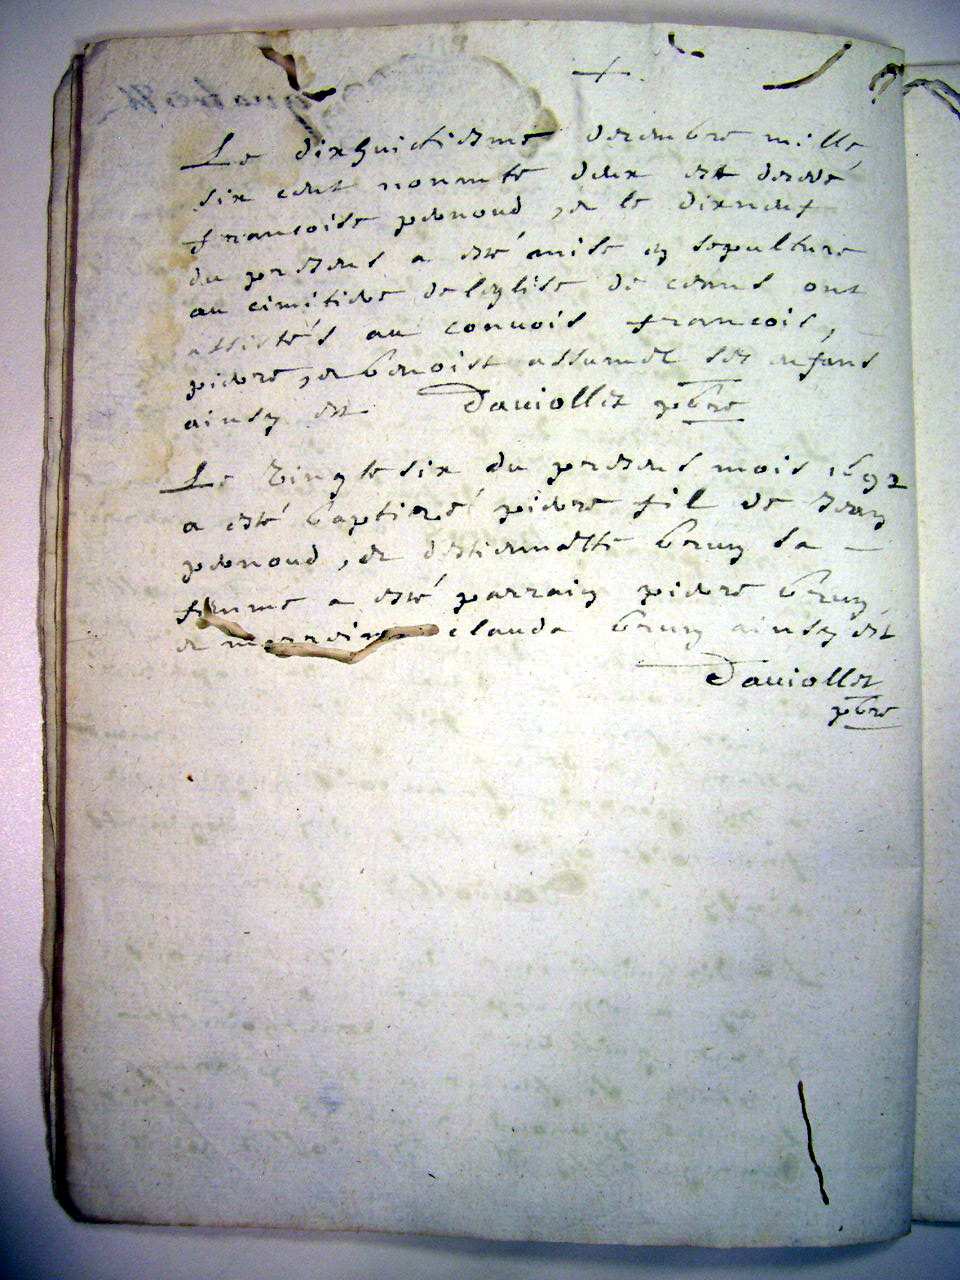 +
Le dixhuictiesme decembre mille
six cent nonante deux est decedé
francoise pernoud, & le dixneuf
du presens a esté mise en sepulture
au cimitiere de leglise de ... ont
assistés au conuois francois,
pierre, & benoist assumel ses enfans
ainsy est Dauiollet pbre
Le vingt six du presens mois 1692
a esté baptizé pierre fil de Jean
pernoud, & destiennette brun sa
femme a esté parrain pierre brun,
& marraine clauda brun ainsy est
Dauiollet
pbre